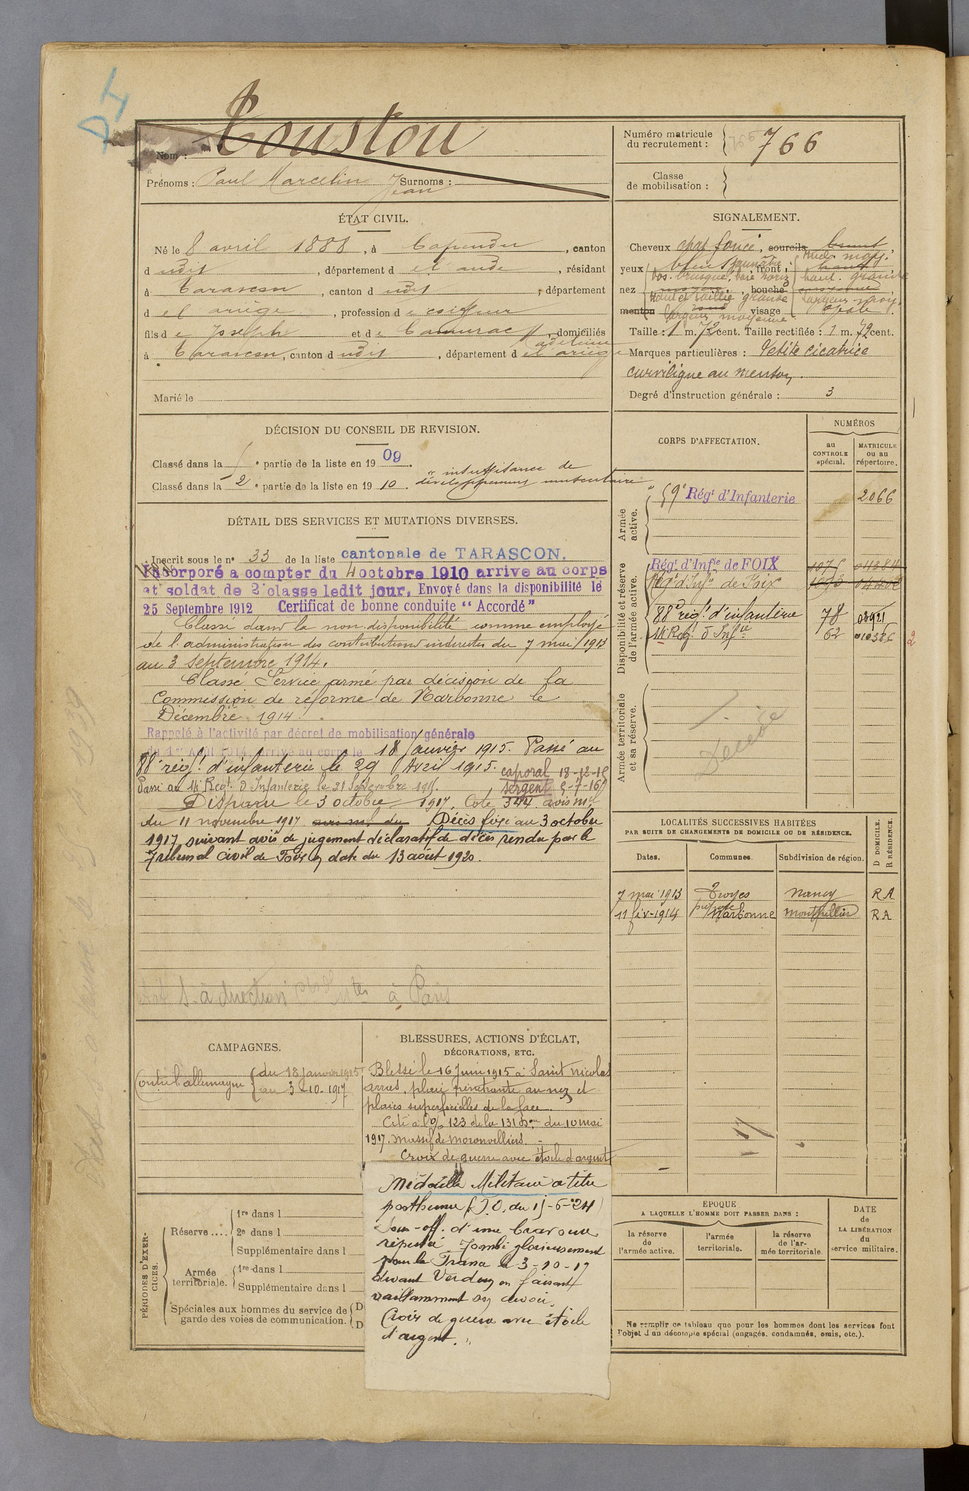 Nom : Toustou
Prénoms : Paul Marcelin Jean Surnoms :
Numéro matricule du recrutement : 766
Classe de mobilisation :
ÉTAT CIVIL.
Né le 8 avril 1888, à Capendu, canton
dudit, département de l'aude, résidant
à Tarascon, canton dudit, département
de l'ariège, profession de coiffeur
fils de Joseph et de Madeleine, domiciliés
à Tarascon, canton dudit, département de l'ariège
Marié le
SIGNALEMENT.
Cheveux chat. foncé, sourcils
yeux bleu jaunâtre, front
nez, bouche
menton visage
Taille : 1 m. 72 cent. Taille rectifiée : 1 m. 72 cent.
Marques particulières : Petite cicatrice
curviligne au menton
Degré d'instruction générale : 3
DÉCISION DU CONSEIL DE REVISION.
Classé dans la 1e partie de la liste en 1909.
Classé dans la 2e partie de la liste en 1910. insuffisance de
développement musculaire
DÉTAIL DES SERVICES ET MUTATIONS DIVERSES.
Inscrit sous le no 33 de la liste cantonale de TARASCON.
Incorporé a compter du 4 octobre 1910 arrive au corps
et soldat de 2e classe ledit jour. Envoyé dans la disponibilité le
25 Septembre 1912 Certificat de bonne conduite "Accordé"
Classé dans la non disponibilité comme employé
de l'administration des contributions indirectes du 7 mai 1913
au 3 septembre 1914.
Classé Service armé par décision de la
Commission de réforme de Narbonne le
Décembre 1914.
Rappelé à l'activité par décret de mobilisation générale
du 1er Août 1914 arrivé au corps le 18 Janvier 1915. Passé au
88e régt. d'infanterie le 29 Avril 1915. caporal 18-12-15
Passé au 14e Regt. d'Infanterie le 21 Septembre 1915. sergent 5-7-16
Disparu le 3 octobre 1917. Coté avis ml
du 11 novembre 1917 Décès fixé au 3 octobre
1917 suivant avis de jugement déclaratif de décès rendu par le
Tribunal Civil de Foix en date du 13 août 1920.
à direction à Paris
CORPS D'AFFECTATION.
NUMÉROS
au CONTROLE spécial.
MATRICULE ou au répertoire.
Armée active.
59e Régt d'Infanterie 2066
Disponibilité et réserve de l'armée active.
Régt d'Infie de FOIX
Régt d'Infie de Foix
88e régt. d'infanterie 78
14e Regt. d'Infie 62
Armée territoriale et sa réserve.
Décédé
LOCALITÉS SUCCESSIVES HABITÉES
PAR SUITE DE CHANGEMENTS DE DOMICILE OU DE RÉSIDENCE.
Dates. Communes. Subdivision de région. D DOMICILE. R RÉSIDENCE.
7 mai 1913 Troyes Nancy RA
11 fév-1914 Narbonne Montpellier RA
CAMPAGNES.
Contre l'allemagne du 18 janvier 1915
au 3-10-1917
BLESSURES, ACTIONS D'ÉCLAT,
DÉCORATIONS, ETC.
Blessé le 16 juin 1915 à Saint Nicolas
arras, plaie pénétrante au nez et
plaies superficielles de la face.
Cité à l'o/ 123 de la 131 Don du 10 mai
1917. Massif de Moronvilliers.
Croix de guerre avec étoile d'argent
Médaille Militaire à titre
posthume (J.O. du 15-6-24)
Sous-off. d'une bravoure
réputée. Tombé glorieusement
pour la France le 3-10-17
devant Verdun en faisant
vaillamment son devoir.
Croix de guerre avec étoile
d'argent.
PÉRIODES D'EXERCICES.
Réserve.... 1re dans l
2e dans l
Supplémentaire dans l
Armée territoriale. 1re dans l
Supplémentaire dans l
Spéciales aux hommes du service de garde des voies de communication. D D
EPOQUE
A LAQUELLE L'HOMME DOIT PASSER DANS :
la réserve de l'armée active.
l'armée territoriale.
la réserve de l'armée territoriale
DATE de LA LIBÉRATION du service militaire.
Ne remplir ce tableau que pour les hommes dont les services font
l'objet d'un décompte spécial (engagés, condamnés, omis, etc.).